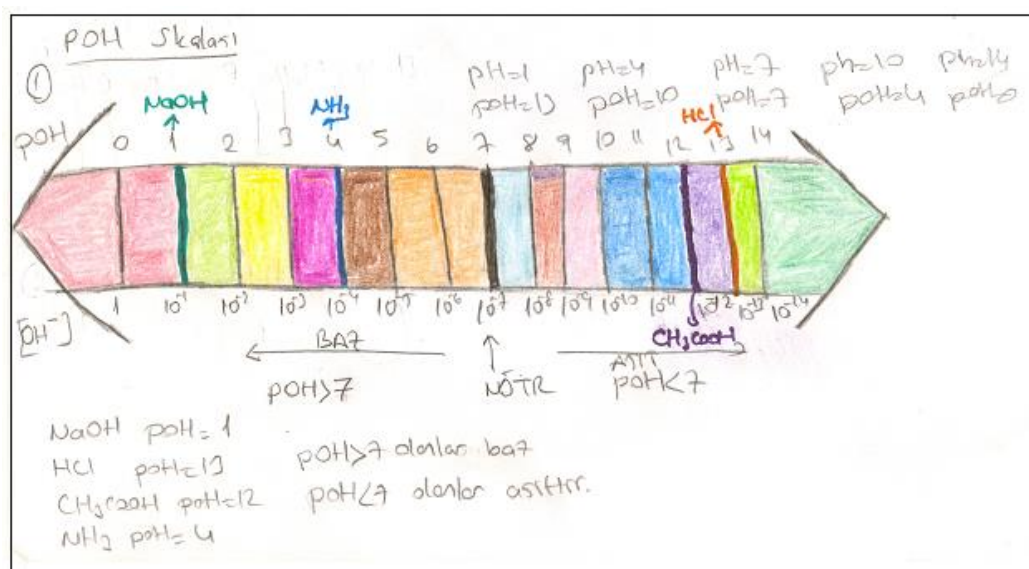 POH Skalası
①
pH=1 pH=4 pH=7 ph=10 ph=14
pOH=13 pOH=10 pOH=7 pOH=4 pOH=0
NaOH NH3 HCl
POH 0 1 2 3 4 5 6 7 8 9 10 11 12 13 14
[OH-] 1 10-1 10-2 10-3 10-4 10-5 10-6 10-7 10-8 10-9 10-10 10-11 10-12 10-13 10-14
CH3COOH
BAZ NÖTR ASİT
POH>7 pOH<7
NaOH pOH=1
HCl pOH=13 pOH>7 olanlar baz
CH3COOH pOH=12 pOH<7 olanlar asittir.
NH3 pOH=4